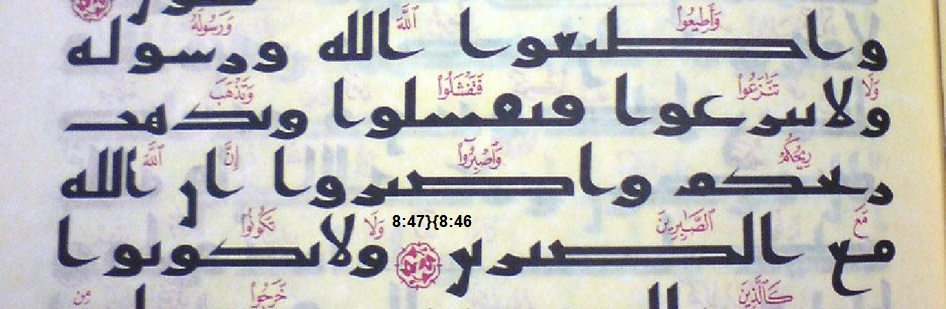 وَأَطِيعُوا ٱللَّهَ وَرَسُولَهُ
واطيعوا الله ورسوله
وَلَا تَنَـٰزَعُوا فَتَفْشَلُوا وَتَذْهَبَ
ولا تنزعوا فتفشلوا وتذهب
رِيحُكُمْ وَٱصْبِرُوٓا إِنَّ ٱللَّهَ
ريحكم واصبروا ان الله
مَعَ ٱلصَّـٰبِرِينَ 8:47}{8:46 وَلَا تَكُونُوا
مع الصبرين ولا تكونوا
كَٱلَّذِينَ خَرَجُوا مِن